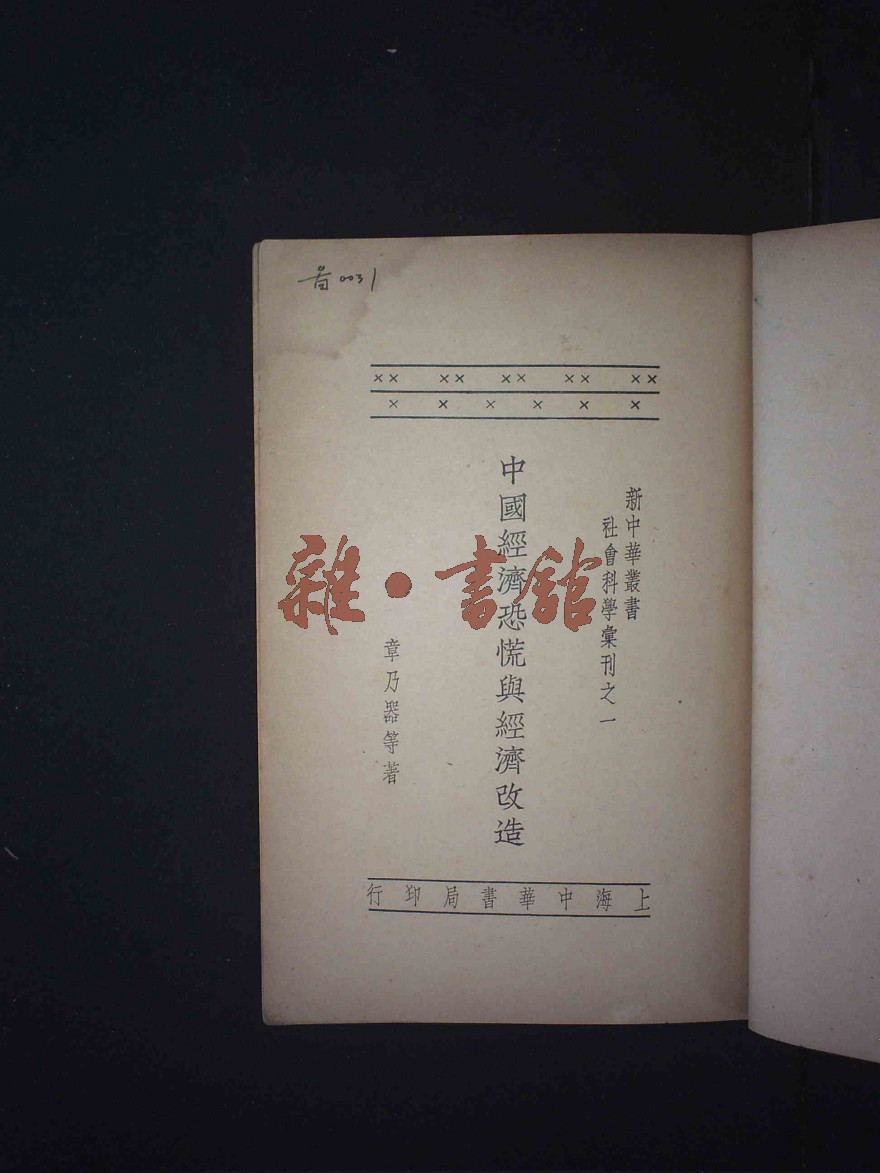 0031
新中華叢書
社會科學彙刊之一
中國經濟恐慌與經濟改造
章乃器等著
上海中華書局印行
雜·書館